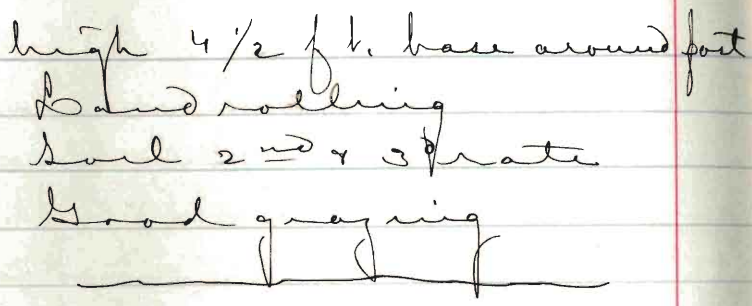 high 4 1/2 ft. base around post
Land rolling
Soil 2nd & 3d rate
Good grazing